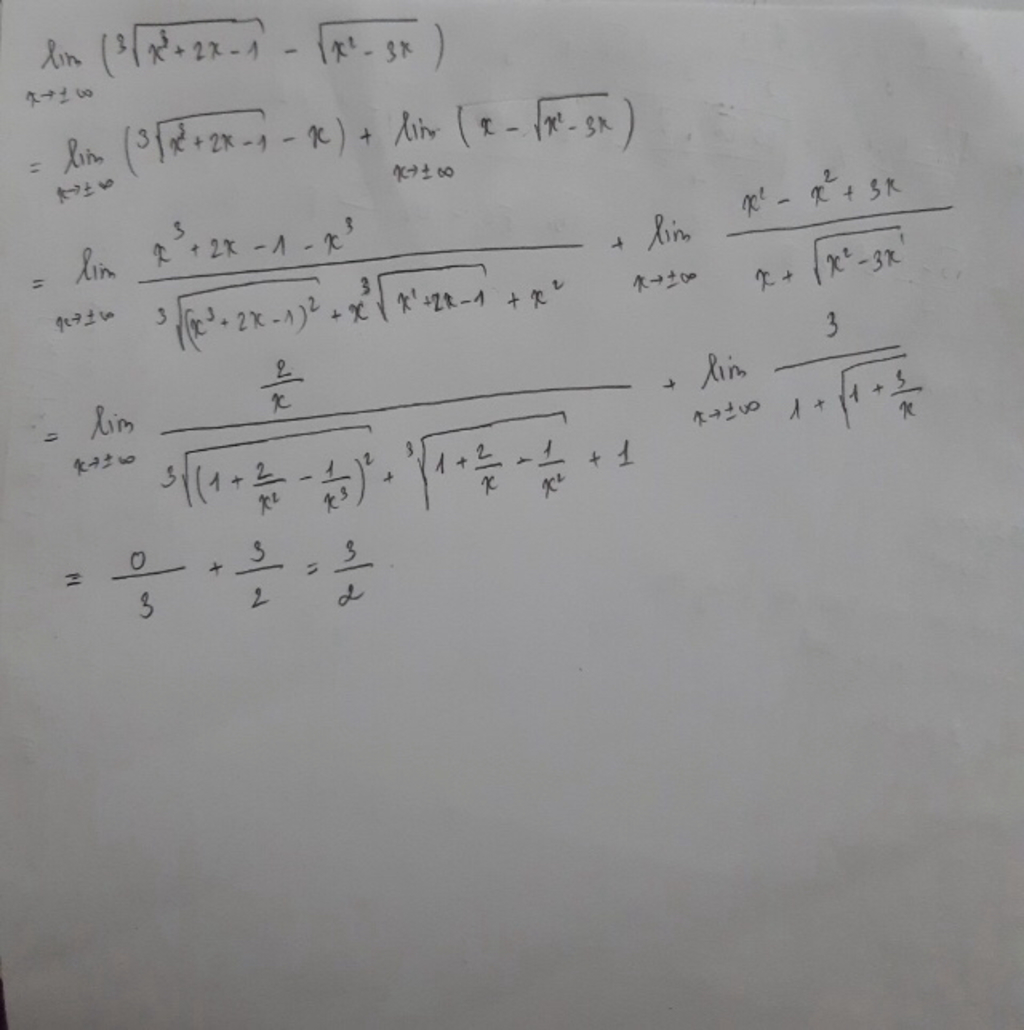 lim x→±∞ (³√(x³+2x-1) - √(x²-3x))
= lim x→±∞ (³√(x³+2x-1) - x) + lim x→±∞ (x - √(x²-3x))
= lim x→±∞ (x³+2x-1-x³)/(³√((x³+2x-1)²) + x ³√(x³+2x-1) + x²) + lim x→±∞ (x²-x²+3x)/(x+√(x²-3x))
= lim x→±∞ (2/x)/(³√((1+2/x²-1/x³)²) + ³√(1+2/x-1/x²) + 1) + lim x→±∞ 3/(1+√(1+3/x))
= 0/3 + 3/2 = 3/2